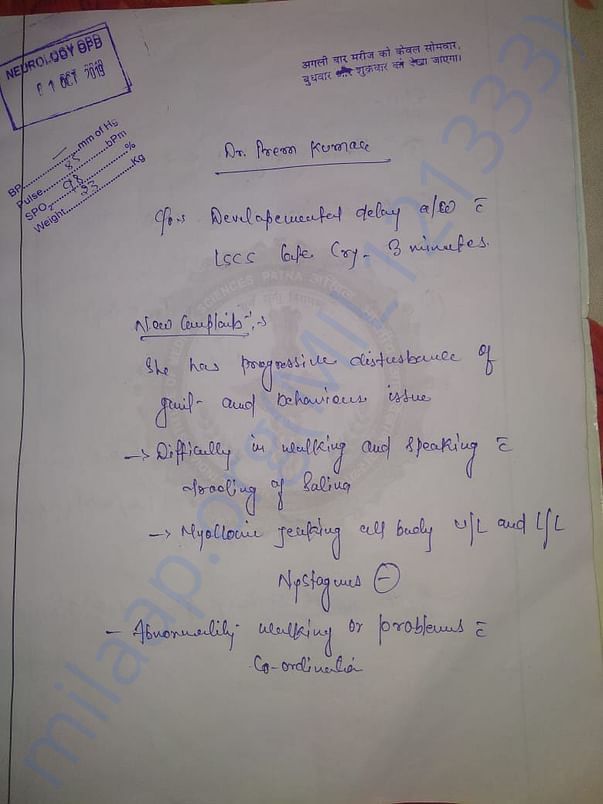 NEUROLOGY OPD
01 OCT 2019
अगली बार मरीज को केवल सोमवार,
बुधवार और शुक्रवार को देखा जाएगा।
BP.........mm of Hg
Pulse...85...bPm
SPO2...98...%
Weight...33...Kg
Dr. Prem Kumar
Developemental delay
LSCS late Cry - 3 minutes.
New Complaints:-
She has progressive disturbance of
gait and behaviour issue
→ Difficulty in walking and speaking c̄
drooling of Saliva
→ Myoclonic jerking all body U/L and L/L
Nystagmus ⊖
- Abnormality walking or problems c̄
Co-ordination
SCIENCES PATNA
milaap.org(MI1121333)